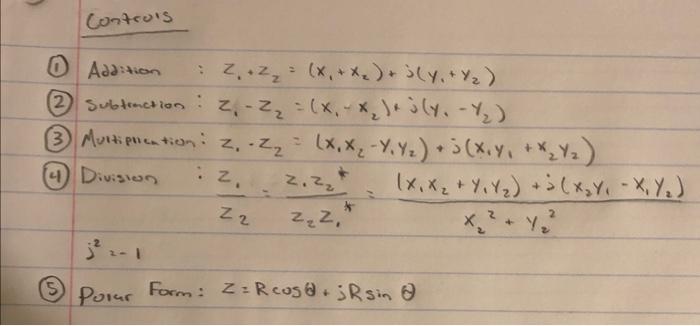 Controls
① Addition : Z₁ + Z₂ = (X₁ + X₂) + j(Y₁ + Y₂)
② Subtraction : Z₁ - Z₂ = (X₁ - X₂) + j(Y₁ - Y₂)
③ Multiplication : Z₁ · Z₂ = (X₁X₂ - Y₁Y₂) + j(X₁Y₁ + X₂Y₂)
④ Division : Z₁/Z₂ = Z₁Z₂*/Z₂Z₁* = (X₁X₂ + Y₁Y₂) + j(X₂Y₁ - X₁Y₂)/X₂² + Y₂²
j² = -1
⑤ Polar Form : Z = R cosθ + jR sin θ